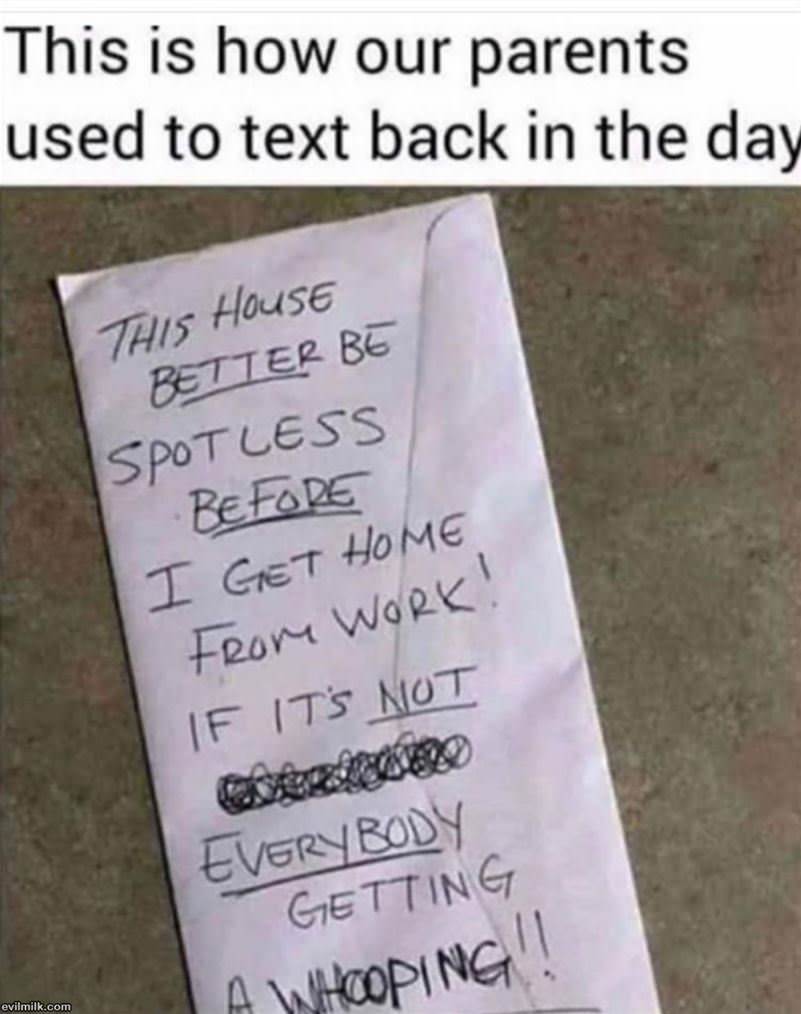 This is how our parents
used to text back in the day
THIS HOUSE
BETTER BE
SPOTLESS
BEFORE
I GET HOME
FROM WORK!
IF IT'S NOT
EVERYBODY
GETTING
A WHOOPING!!
evilmilk.com